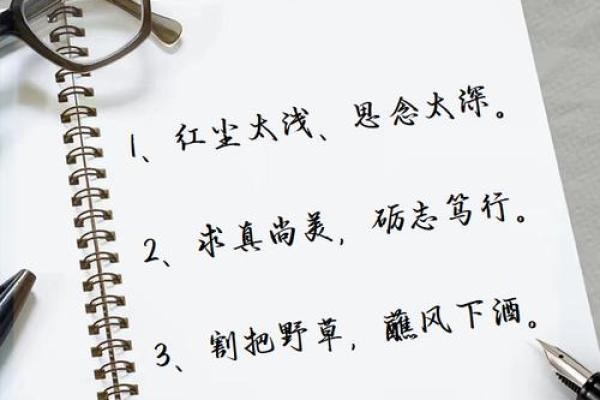 1、红尘太浅、思念太深。
2、求真尚美，砺志笃行。
3、割把野草，蘸风下酒。